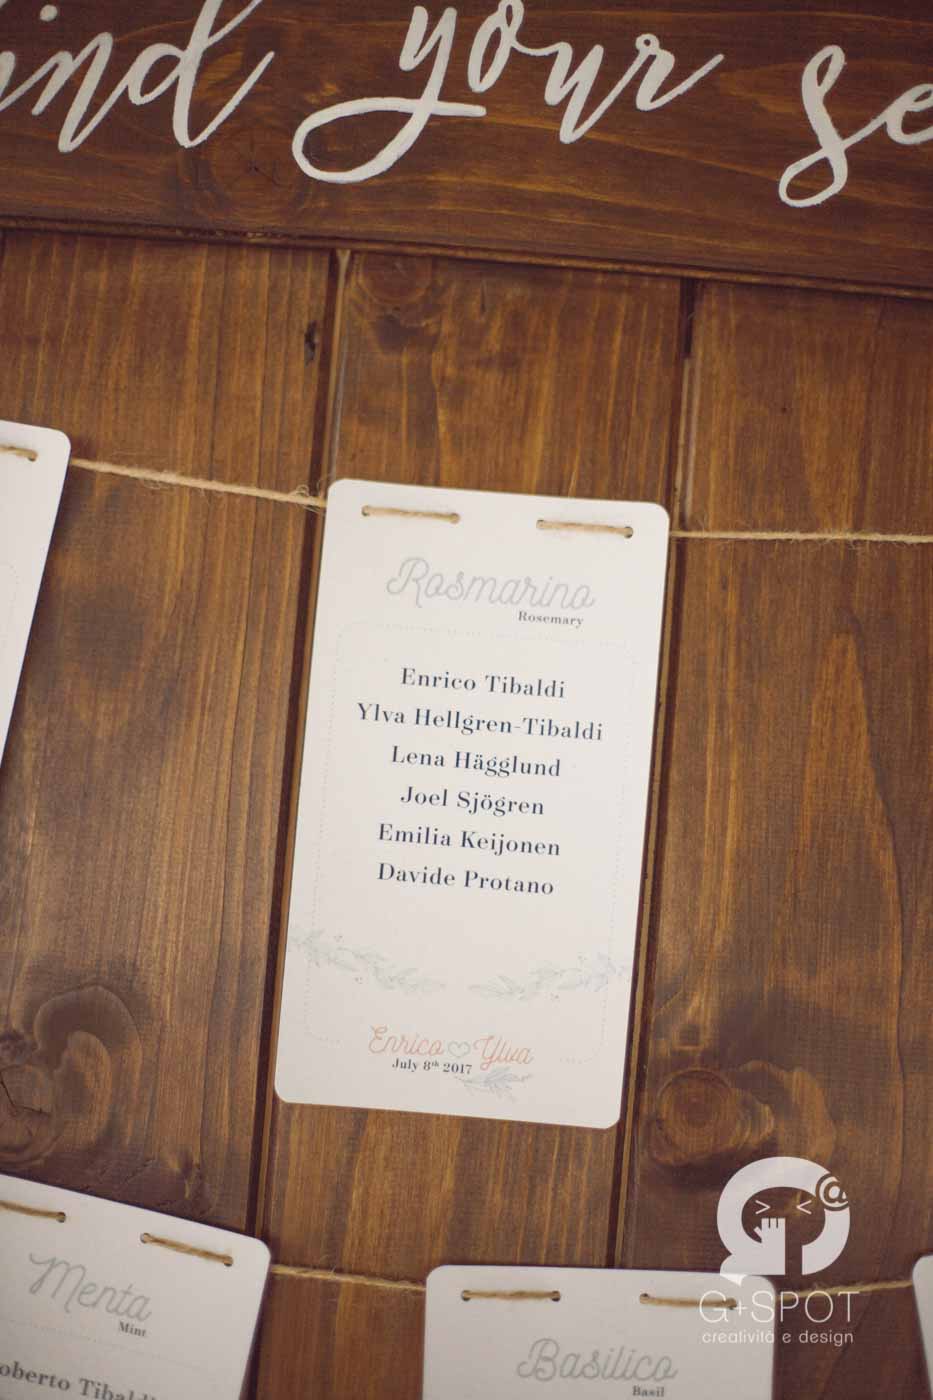 your
Rosmarino
Rosemary
Enrico Tibaldi
Ylva Hellgren-Tibaldi
Lena Hägglund
Joel Sjögren
Emilia Keijonen
Davide Protano
Enrico Ylva
July 8th 2017
Menta
Mint
Basilico
Basil
G+SPOT
creatività e design